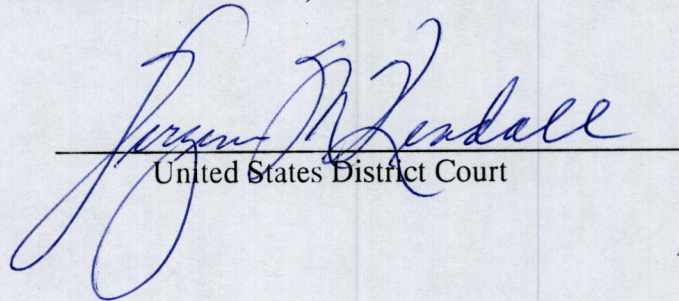 M Kendall
United States District Court